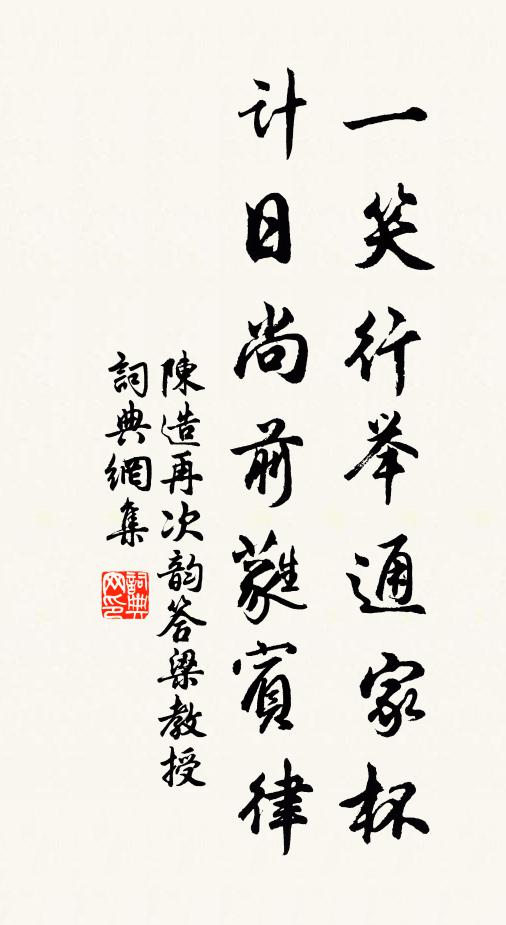 一笑行举通家杯
计日尚前蕤賓律
陳造再次韵答梁教授
詞典網集
詞典网印